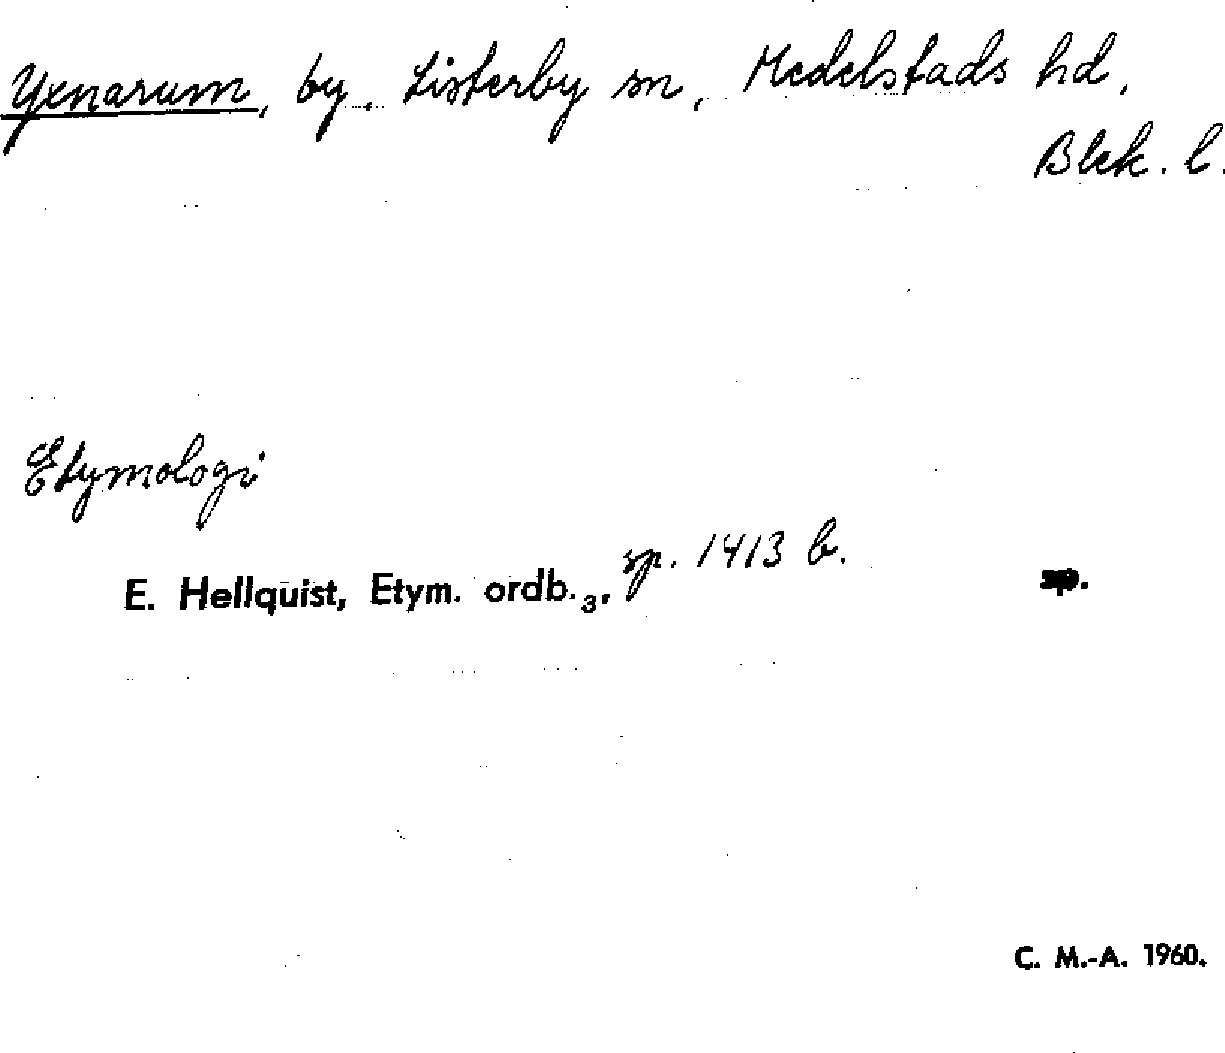 Yxnarum, by, Listerby sn, Medelstads hd,
Blek. l.
Etymologi
E. Hellquist, Etym. ordb.₃, sp. 1413 b. sp.
C. M.-A. 1960.